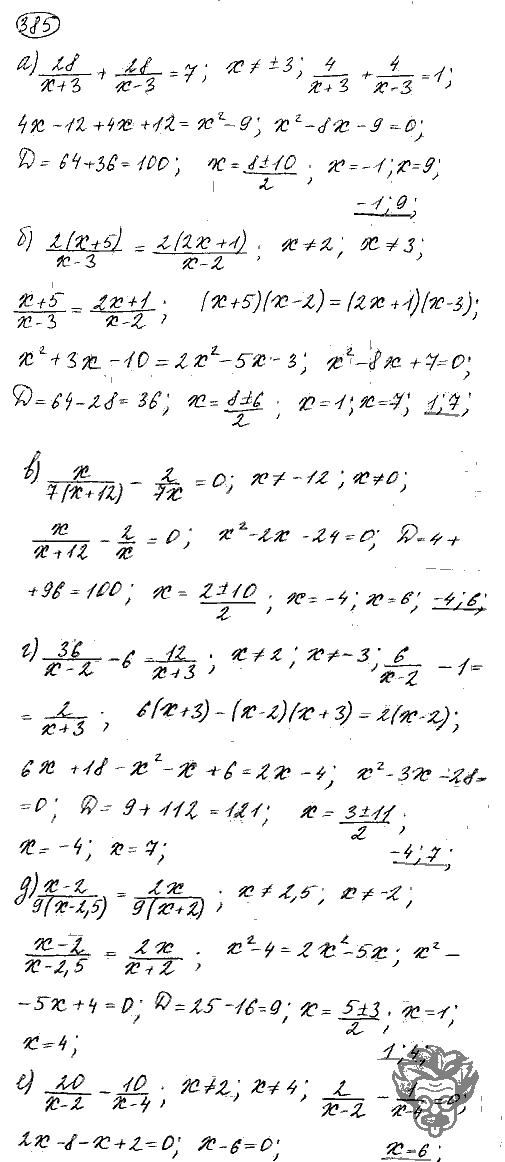 385
а) 28/(x+3) + 28/(x-3) = 7; x ≠ ±3; 4/(x+3) + 4/(x-3) = 1;
4x - 12 + 4x + 12 = x² - 9; x² - 8x - 9 = 0;
D = 64 + 36 = 100; x = (8±10)/2; x = -1; x = 9;
-1; 9;
б) 2(x+5)/(x-3) = 2(2x+1)/(x-2); x ≠ 2; x ≠ 3;
(x+5)/(x-3) = (2x+1)/(x-2); (x+5)(x-2) = (2x+1)(x-3);
x² + 3x - 10 = 2x² - 5x - 3; x² - 8x + 7 = 0;
D = 64 - 28 = 36; x = (8±6)/2; x = 1; x = 7; 1; 7;
в) x/(7(x+12)) - 2/(7x) = 0; x ≠ -12; x ≠ 0;
x/(x+12) - 2/x = 0; x² - 2x - 24 = 0; D = 4 +
+ 96 = 100; x = (2±10)/2; x = -4; x = 6; -4; 6;
г) 36/(x-2) - 6 = 12/(x+3); x ≠ 2; x ≠ -3; 6/(x-2) - 1 =
= 2/(x+3); 6(x+3) - (x-2)(x+3) = 2(x-2);
6x + 18 - x² - x + 6 = 2x - 4; x² - 3x - 28 =
= 0; D = 9 + 112 = 121; x = (3±11)/2;
x = -4; x = 7; -4; 7;
д) (x-2)/(9(x-2,5)) = 2x/(9(x+2)); x ≠ 2,5; x ≠ -2;
(x-2)/(x-2,5) = 2x/(x+2); x² - 4 = 2x² - 5x; x² -
- 5x + 4 = 0; D = 25 - 16 = 9; x = (5±3)/2; x = 1;
x = 4; 1; 4;
е) 20/(x-2) - 10/(x-4); x ≠ 2; x ≠ 4; 2/(x-2) - 1/(x-4) = 0;
2x - 8 - x + 2 = 0; x - 6 = 0; x = 6;